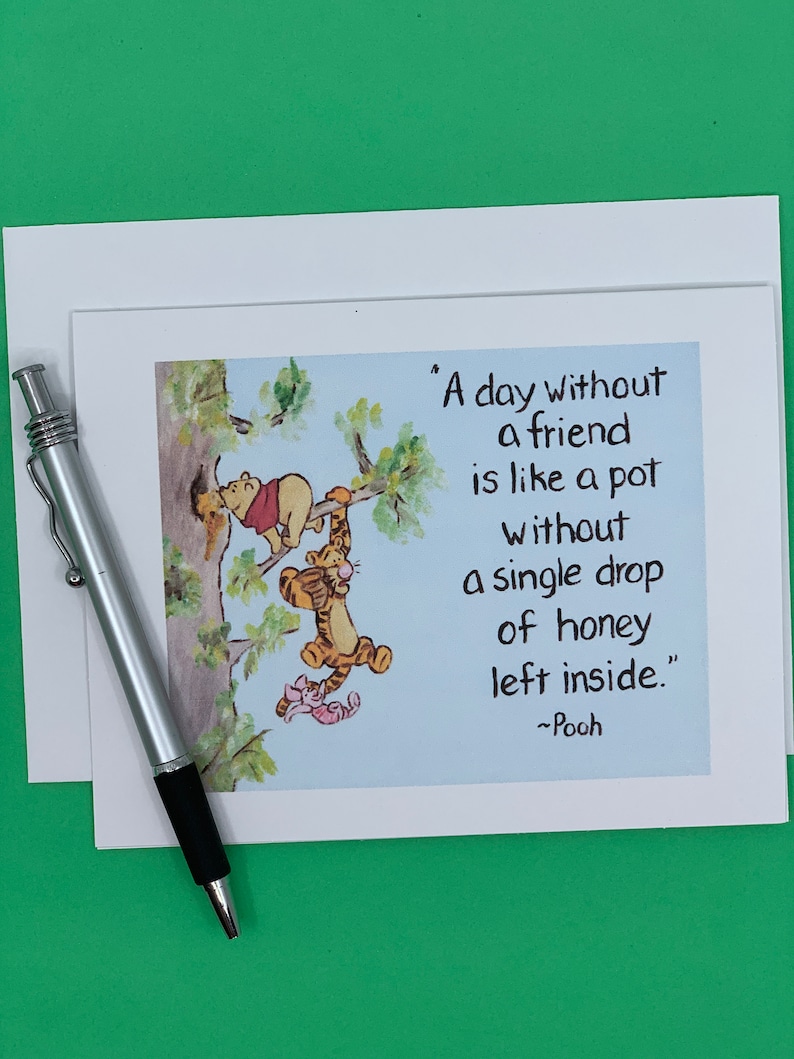 "A day without
a friend
is like a pot
without
a single drop
of honey
left inside."
~Pooh